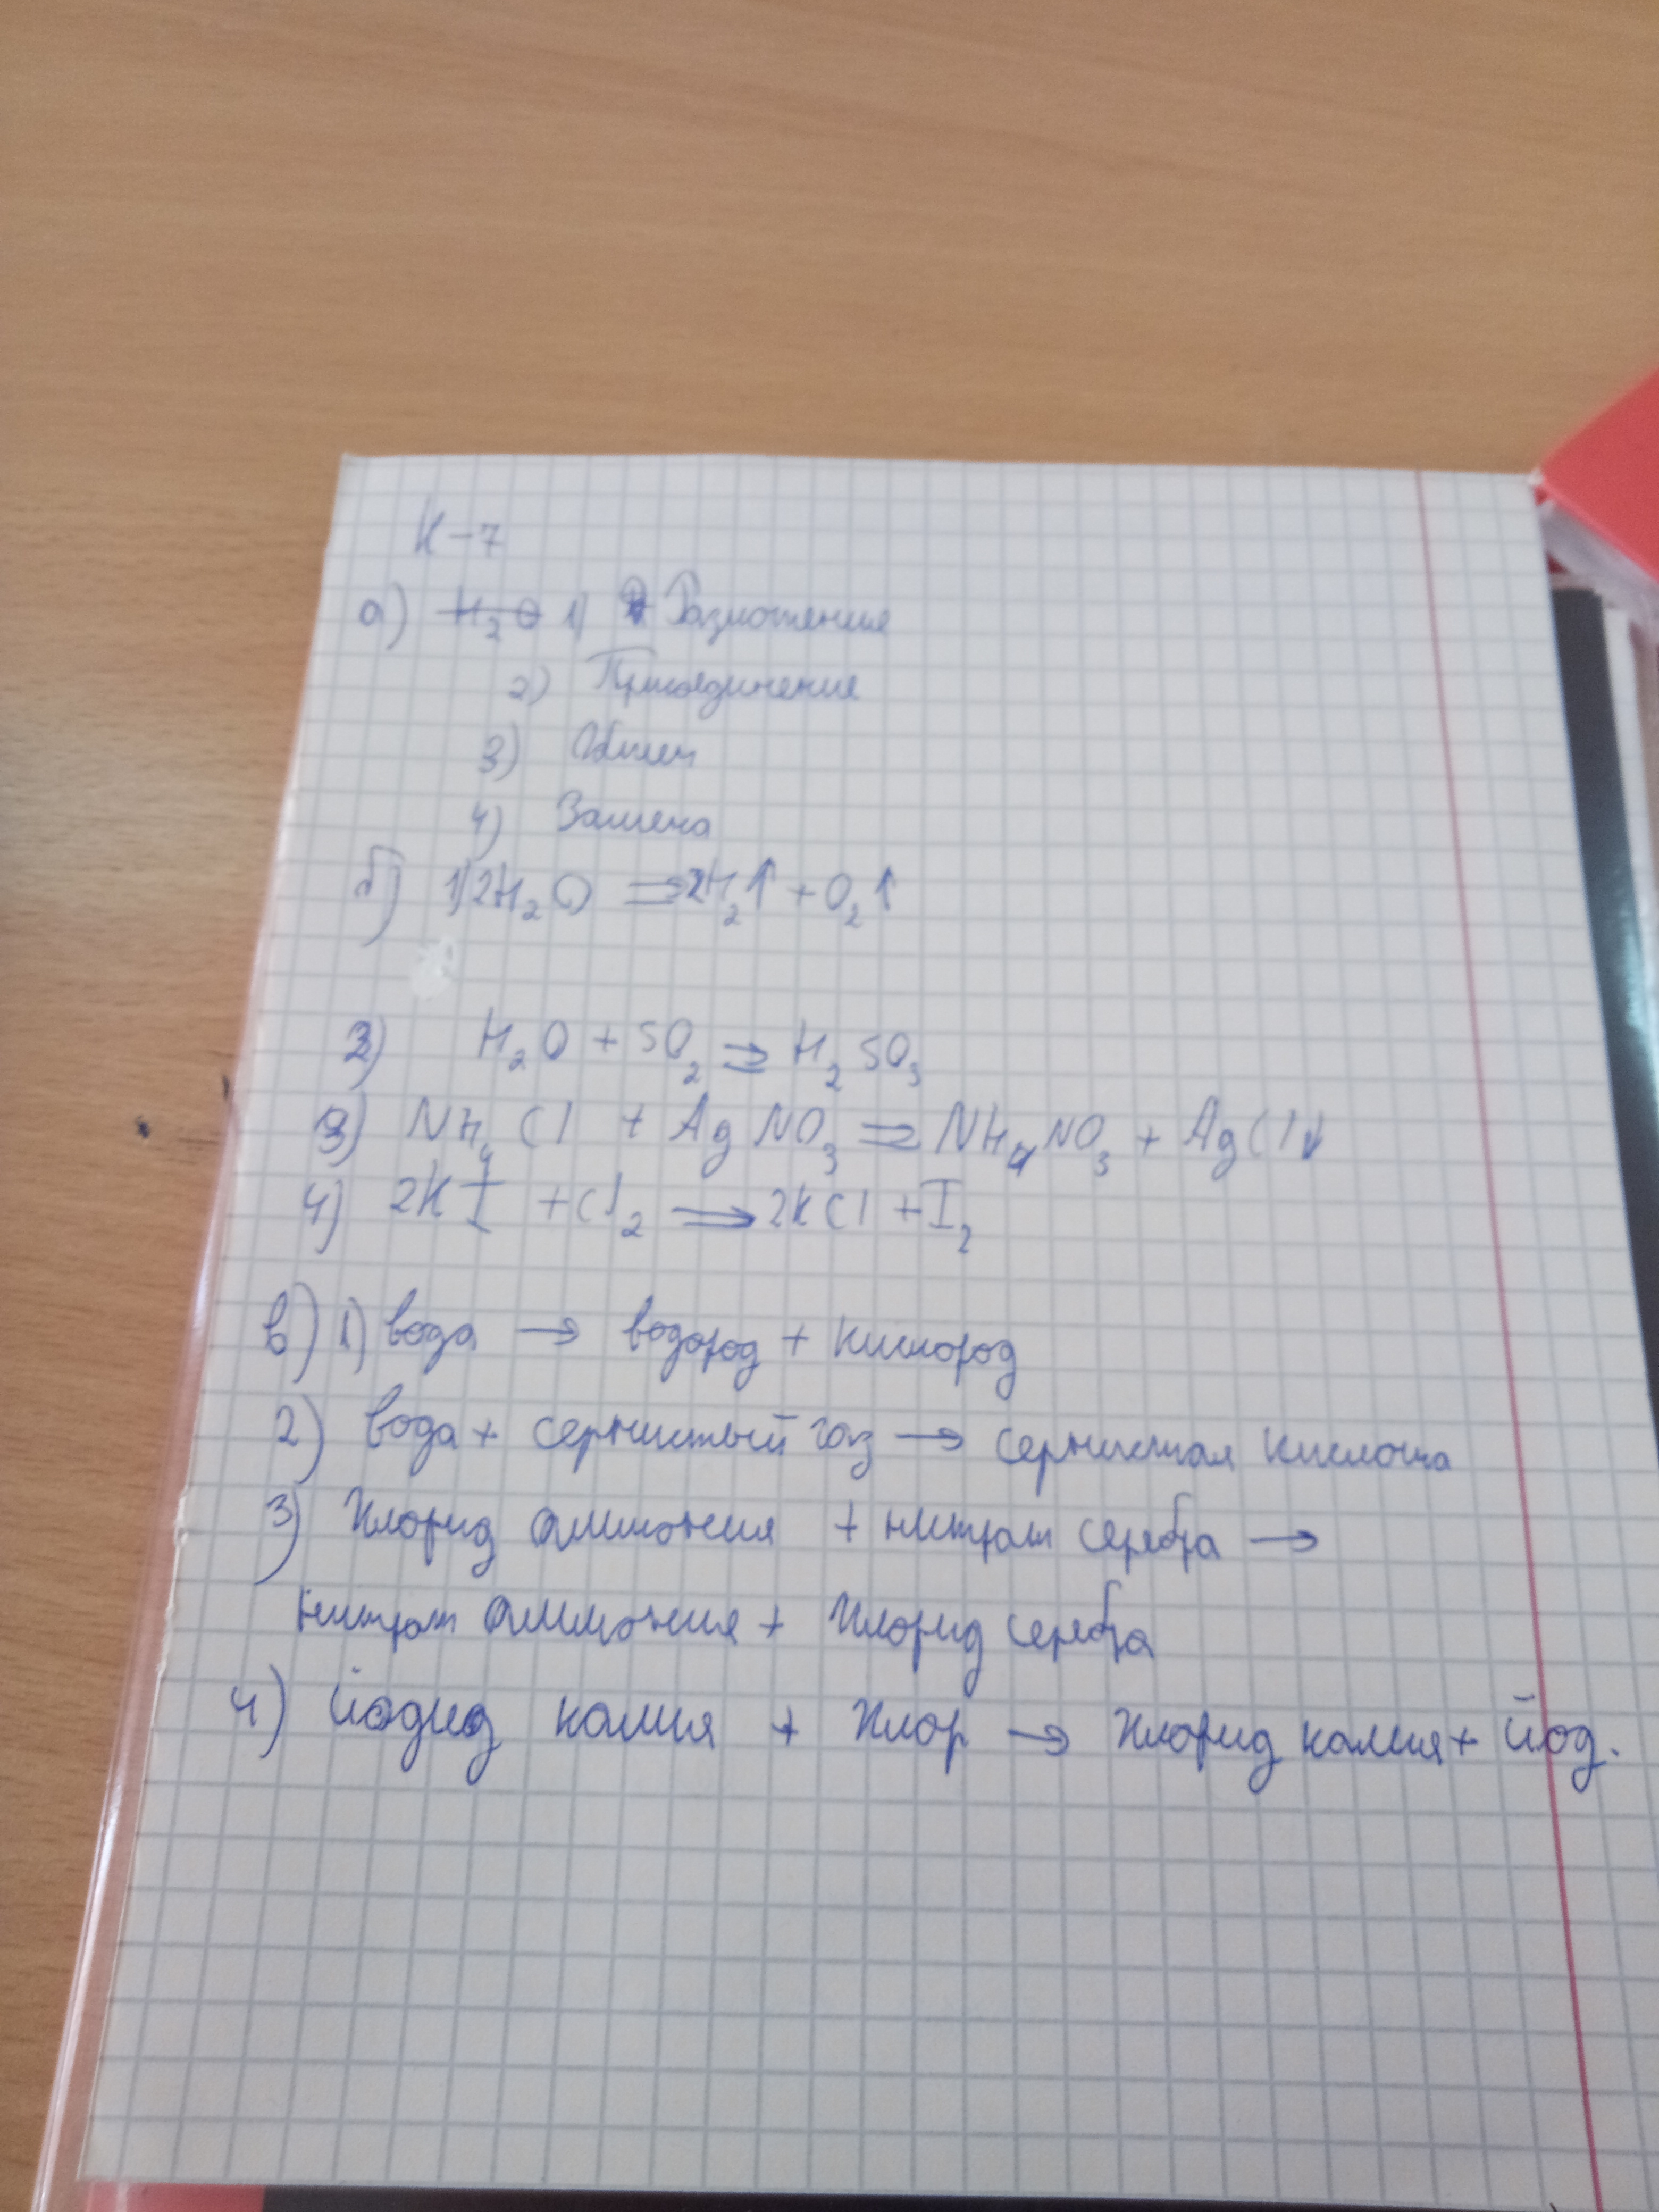 К-7
а) H₂O 1) Разложения
2) Присоединение
3) Обмен
4) Замена
б) 1) 2H₂O ⇒ 2H₂↑ + O₂↑
2) H₂O + SO₂ ⇒ H₂SO₃
3) NH₄Cl + AgNO₃ ⇒ NH₄NO₃ + AgCl↓
4) 2KI + Cl₂ ⇒ 2KCl + I₂
в) 1) вода → водород + кислород
2) вода + сернистый газ → сернистая кислота
3) Хлорид аммония + нитрат серебра →
нитрат аммония + Хлорид серебра
4) йодид калия + Хлор → Хлорид калия + йод.